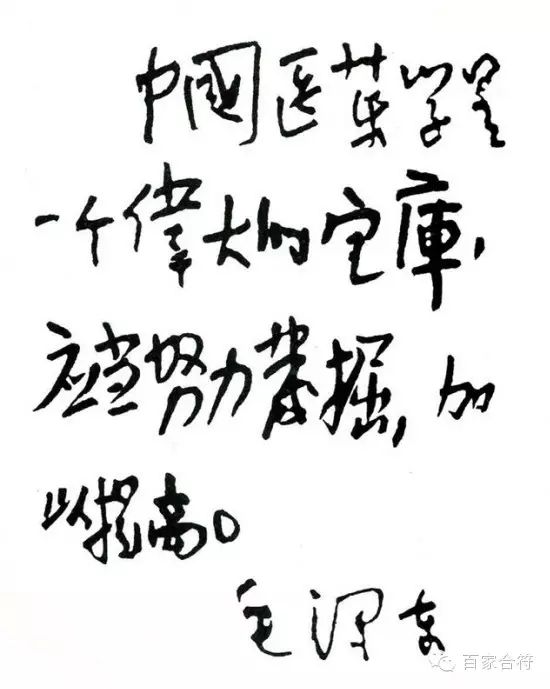 中國医药学是
一个偉大的宝庫，
应当努力发掘，加
以提高。
毛泽东
百家合符